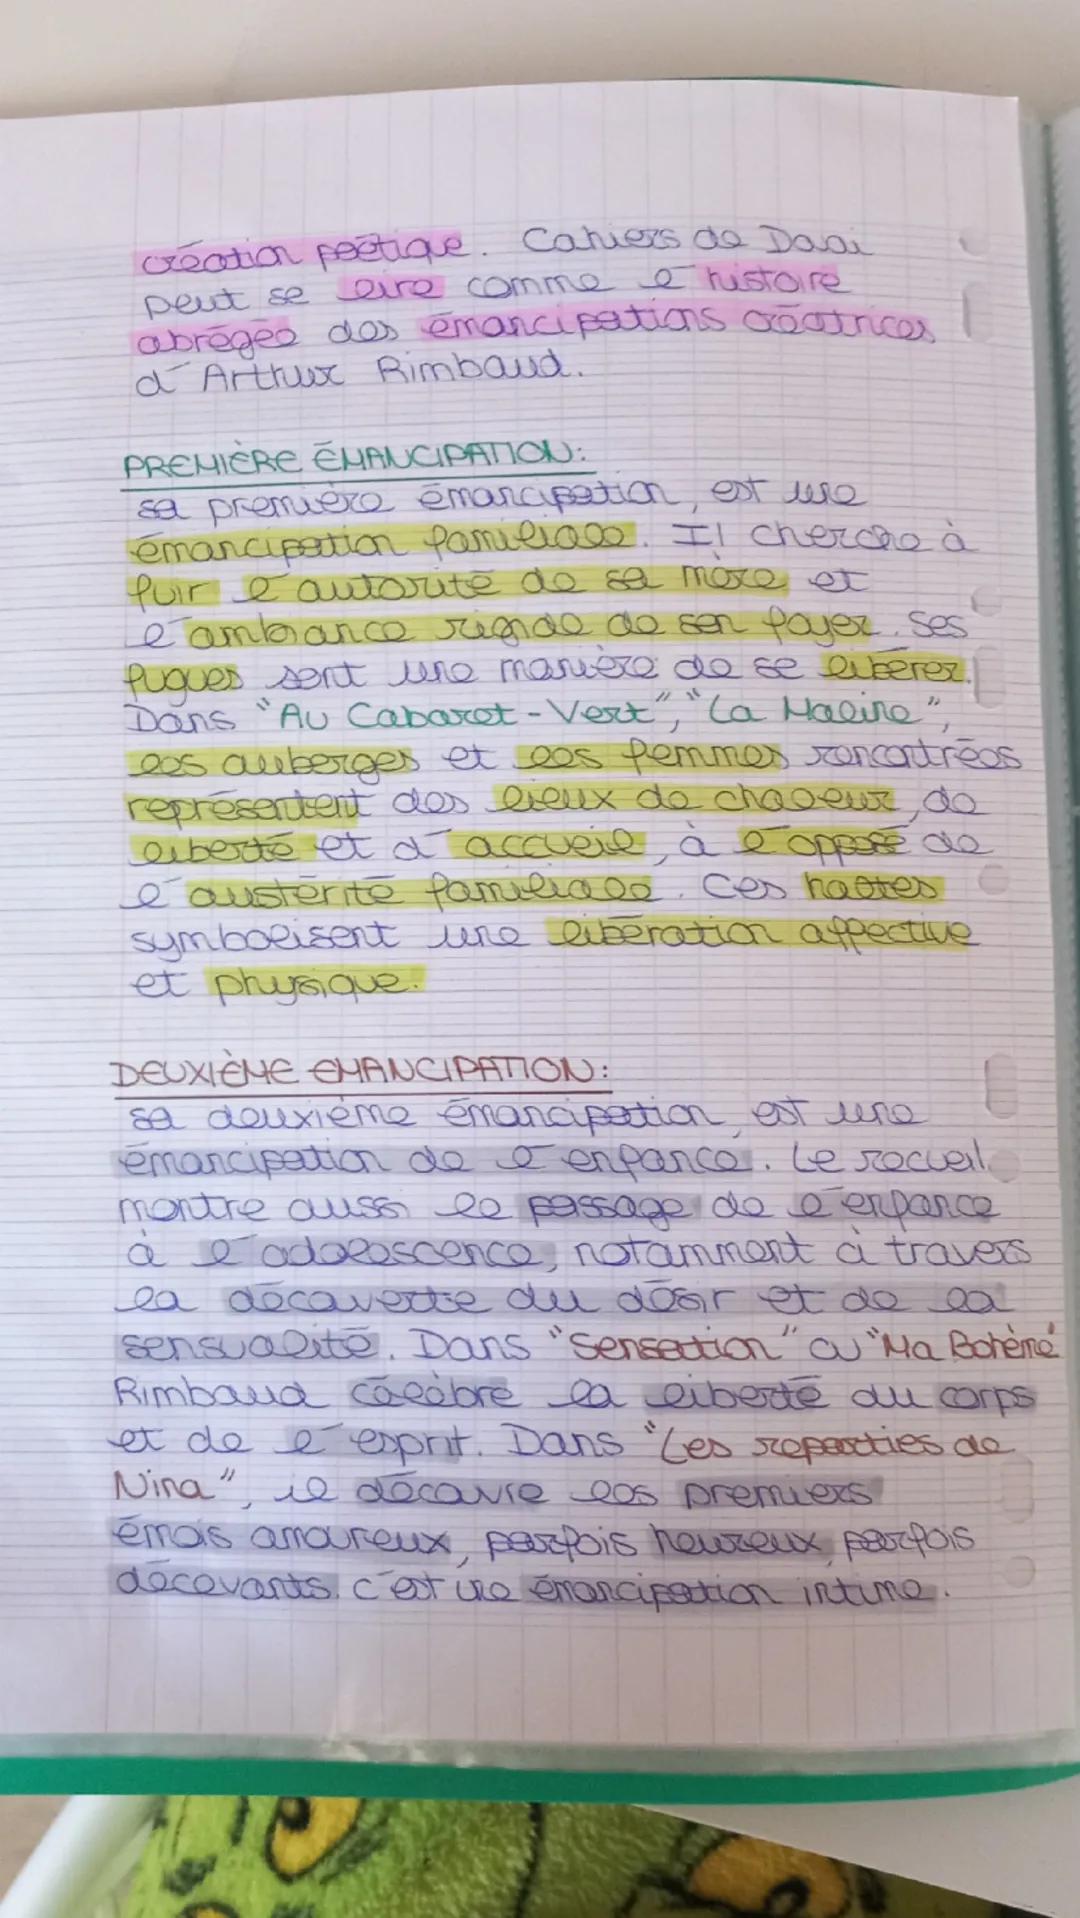 création poétique. Cahiers de Douai
peut se lire comme l'histoire
abrégée des émancipations créatrices
d'Arthur Rimbaud.
PREMIÈRE ÉMANCIPATION:
sa première émancipation, est une
émancipation familiale. Il cherche à
fuir l'autorité de sa mère et
l'ambiance rigide de son foyer. Ses
fugues sont une manière de se libérer.
Dans "Au Cabaret-Vert", "La Maline",
les auberges et les femmes rencontrées
représentent des lieux de chaleur, de
liberté et d'accueil, à l'opposé de
l'austérité familiale. Ces haltes
symbolisent une libération affective
et physique.
DEUXIÈME EMANCIPATION:
sa deuxième émancipation, est une
émancipation de l'enfance. Le recueil
montre aussi le passage de l'enfance
à l'adolescence, notamment à travers
la découverte du désir et de la
sensualité. Dans "Sensation" ou "Ma Bohème"
Rimbaud célèbre la liberté du corps
et de l'esprit. Dans "Les reparties de
Nina", il découvre les premiers
émois amoureux, parfois heureux, parfois
décevants. c'est une émancipation intime.